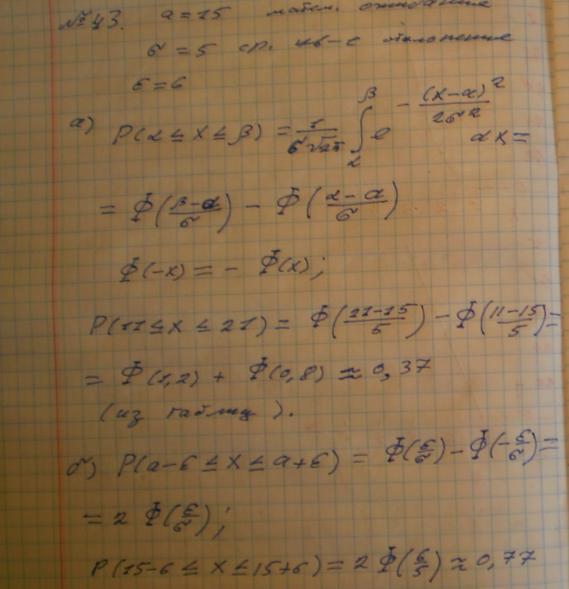 №43. a=15 матем. ожидание
σ=5 ср. кв-е отклонение
ε=6
а) P(α≤X≤β) = 1/(σ√2π) ∫_α^β e^(-(x-a)²/2σ²) dx =
= Φ((β-a)/σ) - Φ((α-a)/σ)
Φ(-x) = - Φ(x);
P(11≤X≤21) = Φ((21-15)/5) - Φ((11-15)/5) =
= Φ(1,2) + Φ(0,8) ≈ 0,37
(из таблиц).
б) P(a-ε≤X≤a+ε) = Φ(ε/σ) - Φ(-ε/σ) =
= 2 Φ(ε/σ);
P(15-6≤X≤15+6) = 2 Φ(6/5) ≈ 0,77